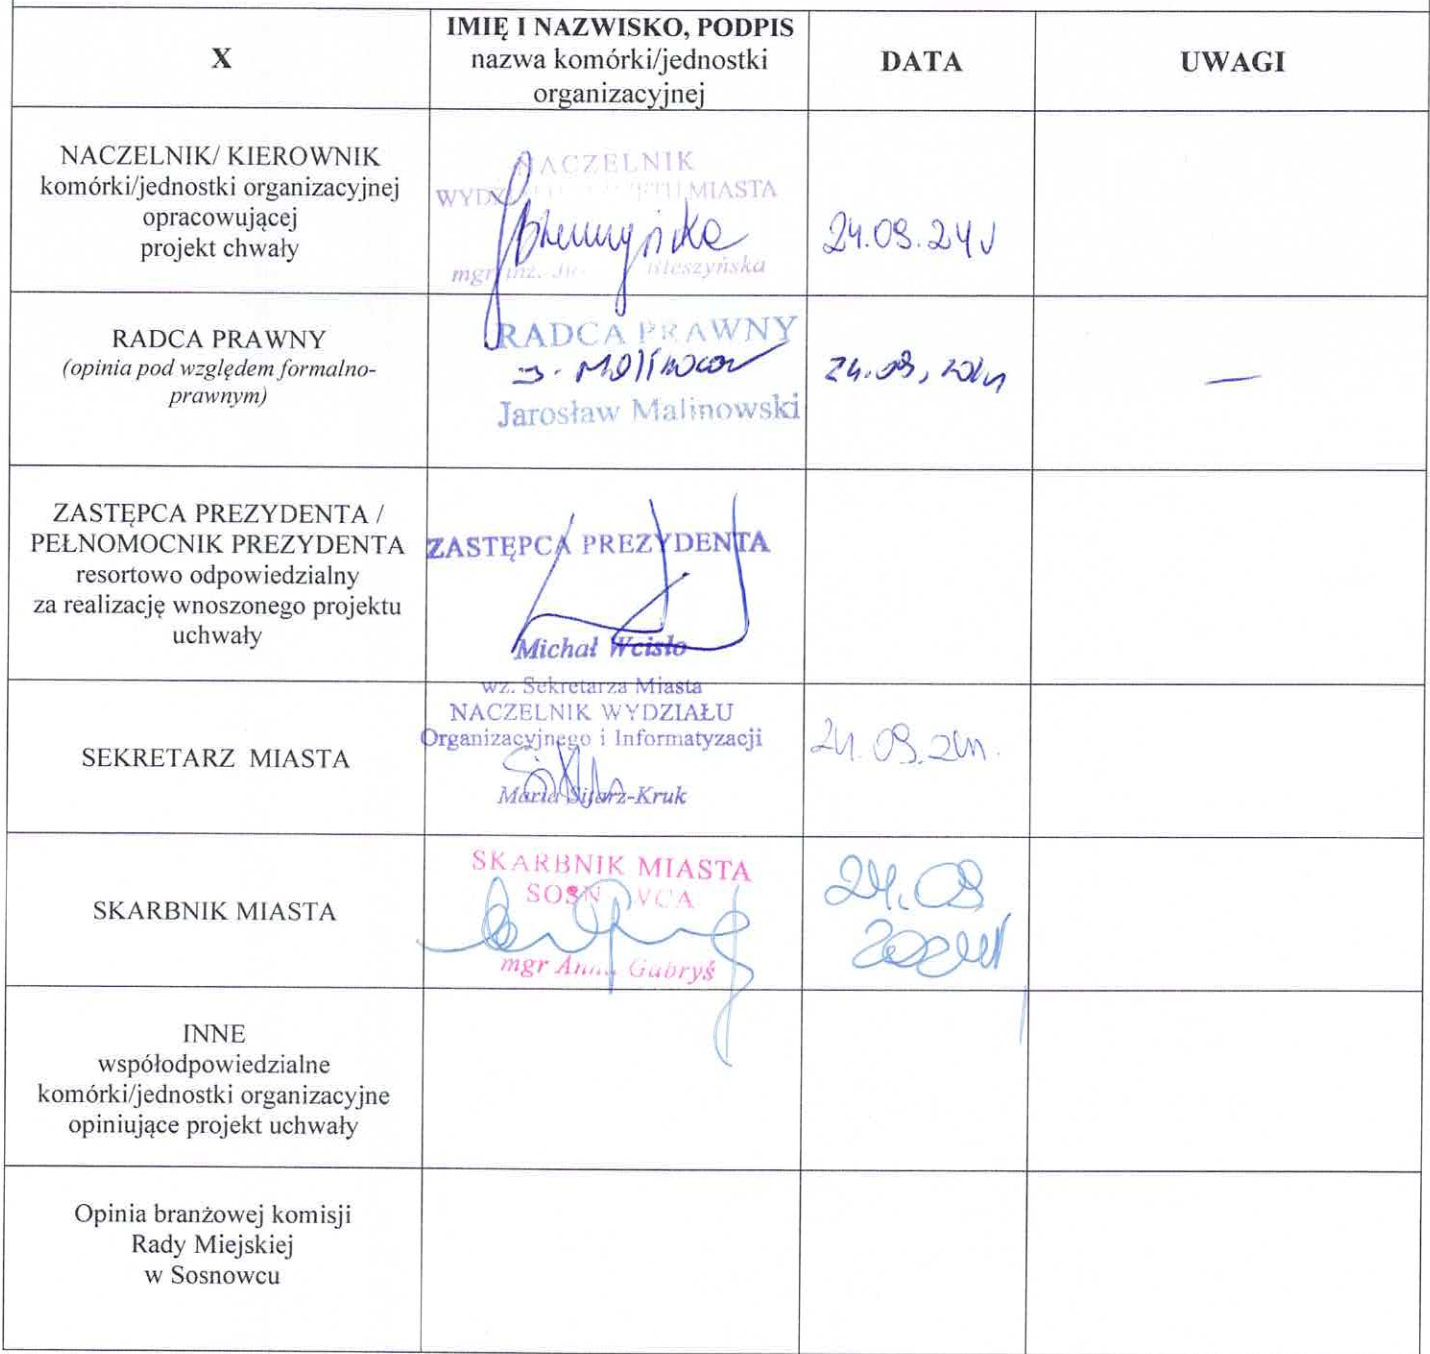 X
IMIĘ I NAZWISKO, PODPIS
nazwa komórki/jednostki
organizacyjnej
DATA
UWAGI
NACZELNIK/ KIEROWNIK
komórki/jednostki organizacyjnej
opracowującej
projekt chwały
NACZELNIK
MIASTA
mgr inż.
24.09.24
RADCA PRAWNY
(opinia pod względem formalno-
prawnym)
RADCA PRAWNY
Jarosław Malinowski
24.09.
—
ZASTĘPCA PREZYDENTA /
PEŁNOMOCNIK PREZYDENTA
resortowo odpowiedzialny
za realizację wnoszonego projektu
uchwały
ZASTĘPCA PREZYDENTA
Michał Wcisło
SEKRETARZ MIASTA
wz. Sekretarza Miasta
NACZELNIK WYDZIAŁU
Organizacyjnego i Informatyzacji
Maria Sitarz-Kruk
24.09.
SKARBNIK MIASTA
SKARBNIK MIASTA
mgr Anna Gabryś
24.09
INNE
współodpowiedzialne
komórki/jednostki organizacyjne
opiniujące projekt uchwały
Opinia branżowej komisji
Rady Miejskiej
w Sosnowcu